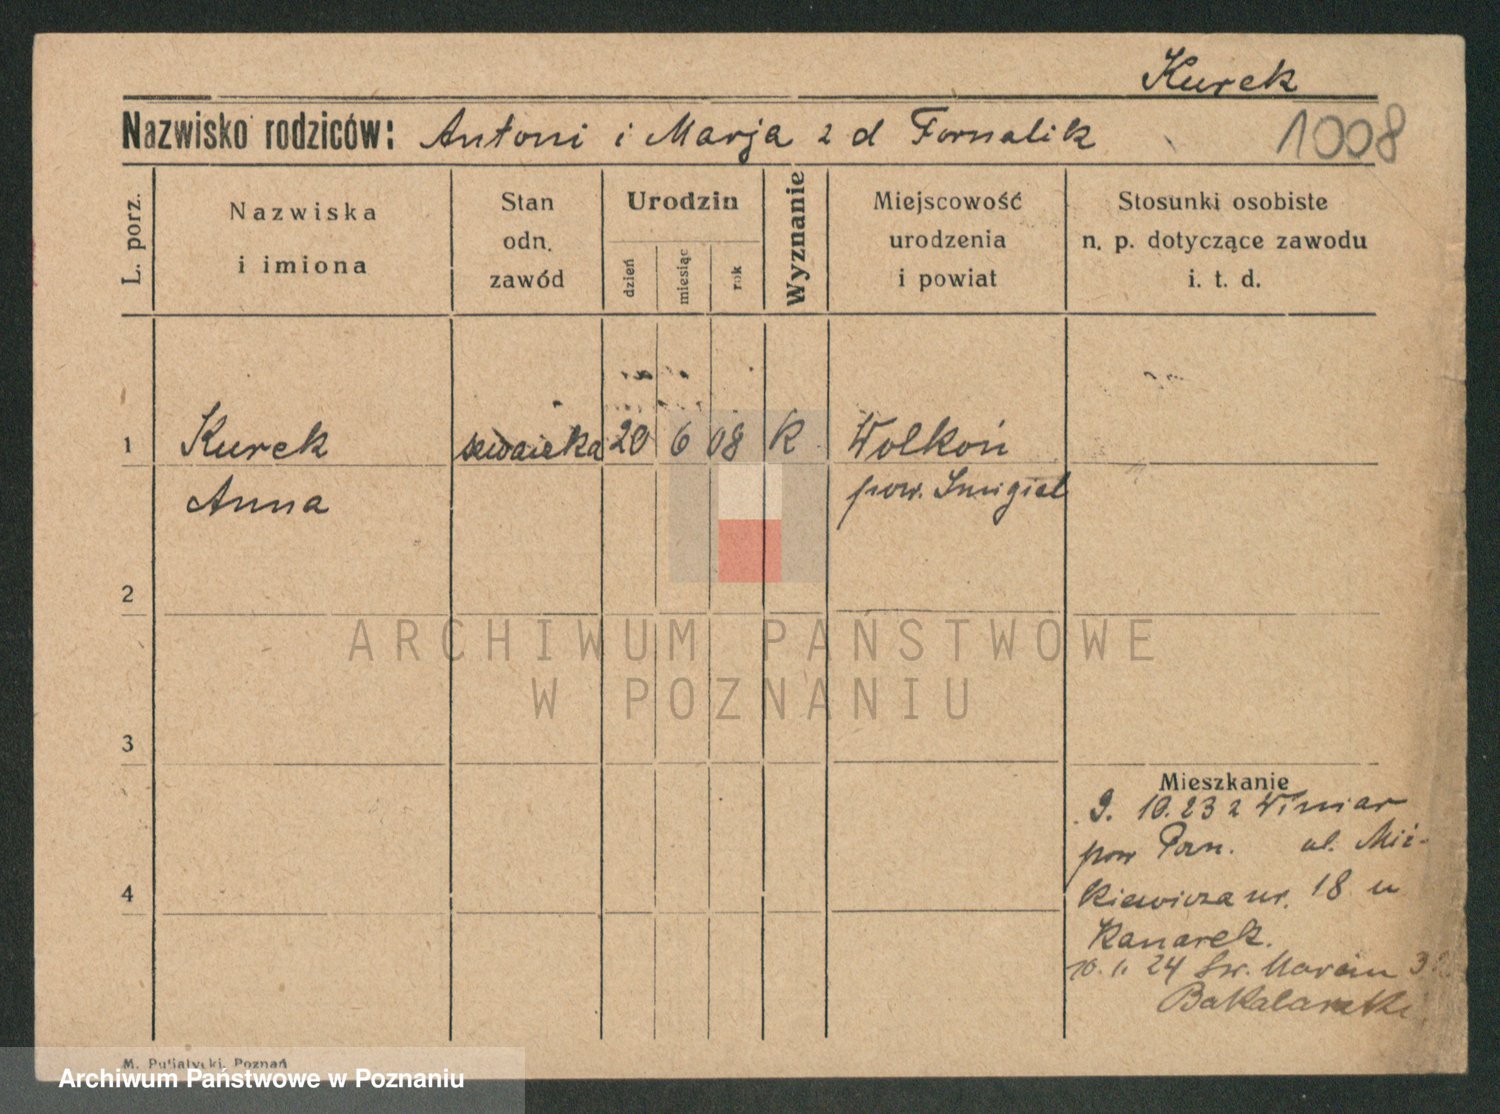 Kurek
Nazwisko rodziców: Antoni i Marja z d Fornalik
1008
L. porz.
Nazwiska
i imiona
Stan
odn.
zawód
Urodzin
dzień
miesiąc
rok
Wyznanie
Miejscowość
urodzenia
i powiat
Stosunki osobiste
n. p. dotyczące zawodu
i. t. d.
1 Kurek 20 6 08 K Wolkoń
Anna pow. Smigiel
2
ARCHIWUM PAŃSTWOWE
W POZNANIU
3
Mieszkanie
9. 10. 23 z Winiar
pow Pozn. ul. Mic-
4
kiewicza nr. 18 u
Kanarek.
24 Św. Marcin
M. Putiatycki, Poznań
Archiwum Państwowe w Poznaniu